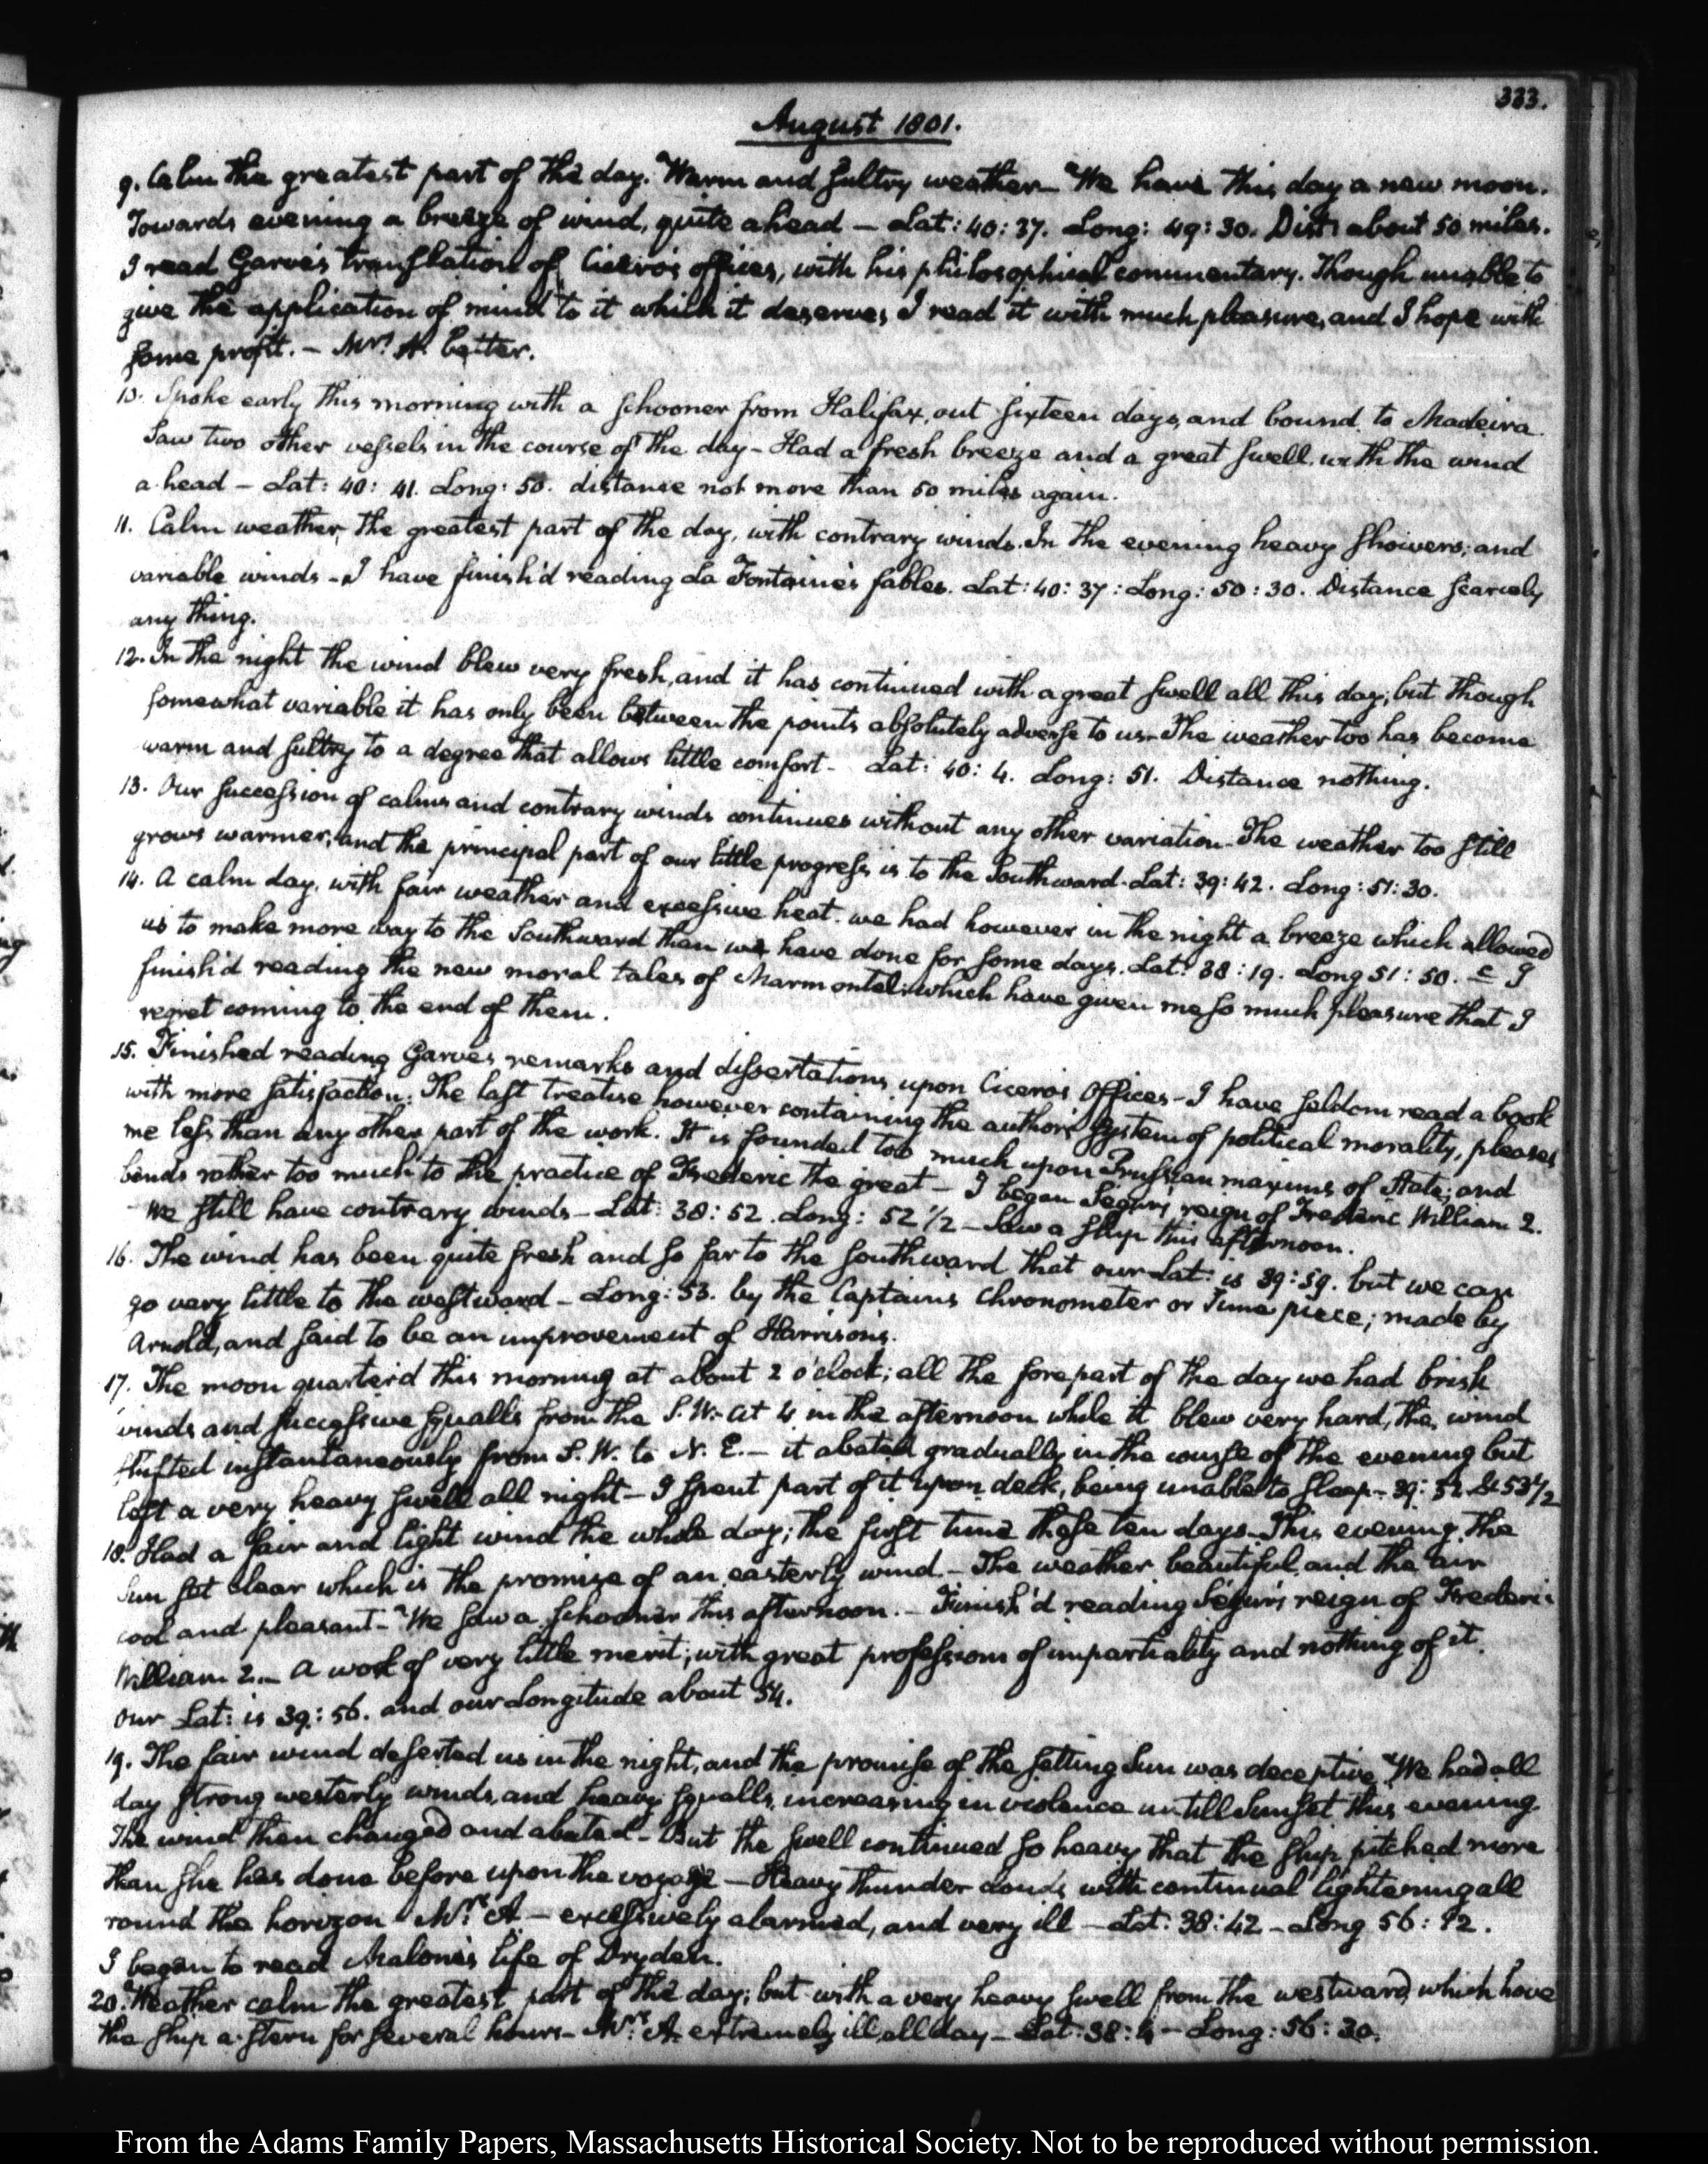 333.
August 1801.
9. Calm the greatest part of the day. Warm and sultry weather — We have this day a new moon.
Towards evening a breeze of wind, quite ahead — Lat: 40: 37. Long: 49: 30. Dist: about 50 miles.
I read Garve's translation of Cicero's offices, with his philosophical commentary. Though unable to
give the application of mind to it which it deserves, I read it with much pleasure, and I hope with
some profit. — Mrs. A. better.
10. Spoke early this morning with a schooner from Halifax, out sixteen days, and bound to Madeira.
Saw two other vessels in the course of the day — Had a fresh breeze and a great swell, with the wind
a-head — Lat: 40: 41. Long: 50. distance not more than 50 miles again.
11. Calm weather, the greatest part of the day, with contrary winds. In the evening heavy showers, and
variable winds — I have finish'd reading La Fontaine's fables. Lat: 40: 37: Long: 50: 30. Distance scarcely
any thing.
12. In the night the wind blew very fresh, and it has continued with a great swell all this day; but though
somewhat variable it has only been between the points absolutely adverse to us — The weather too has become
warm and sultry to a degree that allows little comfort — Lat: 40: 4. Long: 51. Distance nothing.
13. Our succession of calms and contrary winds continues without any other variation — The weather too still
grows warmer, and the principal part of our little progress is to the Southward. Lat: 39: 42. Long: 51: 30.
14. A calm day, with fair weather and excessive heat. we had however in the night a breeze which allowed
us to make more way to the Southward than we have done for some days. Lat: 38: 19. Long 51: 50. — I
finish'd reading the new moral tales of Marmontel; which have given me so much pleasure that I
regret coming to the end of them.
15. Finished reading Garve's remarks and dissertations upon Cicero's Offices — I have seldom read a book
with more satisfaction. The last treatise however containing the author's system of political morality, pleases
me less than any other part of the work. It is founded too much upon Prussian maxims of State; and
bends rather too much to the practice of Frederic the great — I began Ségur's reign of Frederic William 2.
We still have contrary winds — Lat: 38: 52. Long: 52 1/2 — Saw a ship this afternoon.
16. The wind has been quite fresh and so far to the southward that our Lat: is 39: 59. but we can
go very little to the westward — Long: 53. by the Captain's Chronometer or Time piece; made by
Arnold, and said to be an improvement of Harrison's.
17. The moon quarter'd this morning at about 2 o'clock; all the forepart of the day we had brisk
winds and successive squalls from the S.W. — At 4 in the afternoon while it blew very hard, the wind
shifted instantaneously from S.W. to N.E. — it abated gradually in the course of the evening but
left a very heavy swell all night — I spent part of it upon deck, being unable to sleep — 39: 32. & 53 1/2
18. Had a fair and light wind the whole day; the first time these ten days. This evening the
Sun set clear which is the promise of an easterly wind — The weather beautiful, and the air
cool and pleasant — We saw a schooner this afternoon. — Finish'd reading Ségur's reign of Frederic
William 2. — A work of very little merit; with great professions of impartiality and nothing of it.
Our Lat: is 39: 56. and our Longitude about 54.
19. The fair wind deserted us in the night, and the promise of the setting Sun was deceptive. We had all
day strong westerly winds, and heavy squalls, increasing in violence untill Sunset this evening.
The wind then changed and abated — But the swell continued so heavy that the ship pitched more
than she has done before upon the voyage — Heavy thunder clouds with continual lightening all
round the horizon Mrs. A — excessively alarmed, and very ill — Lat: 38: 42 — Long 56: 12.
I began to read Malone's life of Dryden.
20. Weather calm the greatest part of the day; but with a very heavy swell from the westward, which hove
the ship a-stern for several hours — Mrs. A. extremely ill, all day — Lat: 38: 4 — Long: 56: 30.
From the Adams Family Papers, Massachusetts Historical Society. Not to be reproduced without permission.